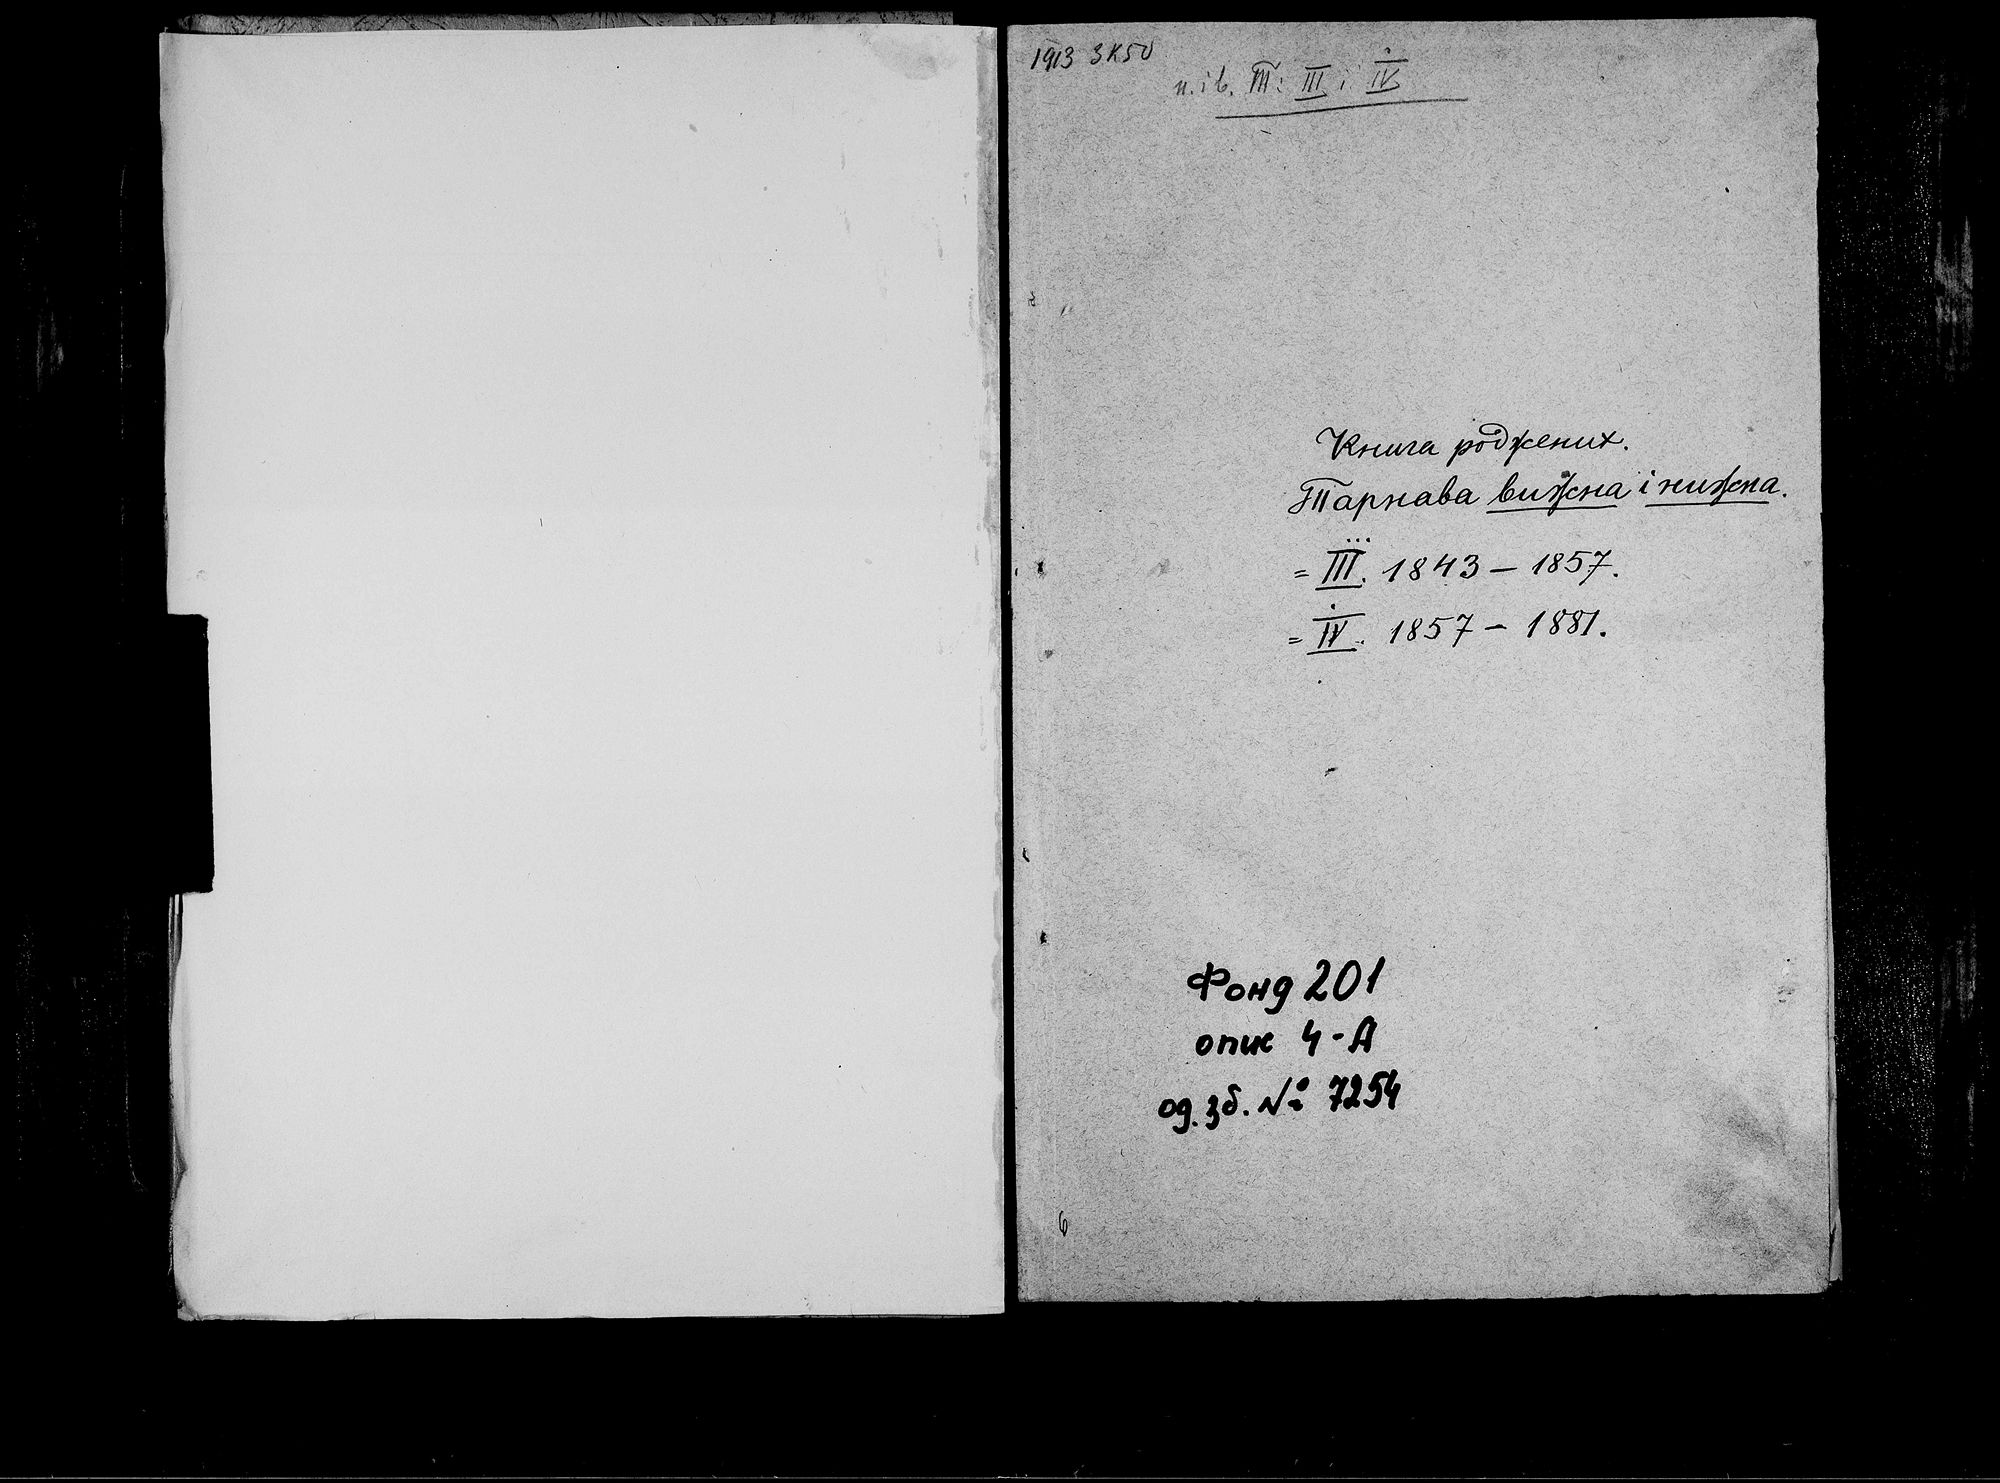 1913 ЗК50
н. і в. Т: III і IV
Книга роджених.
Тарнава вижна і нижна.
= III. 1843 – 1857.
= IV. 1857 – 1881.
Фонд 201
опис 4-А
од. зб. № 7254
6